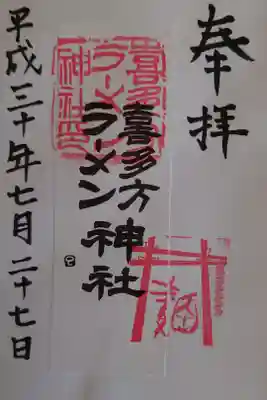 奉拝
喜多方
ラーメン神社
平成三十年七月二十七日
喜多方
ラーメン
神社印